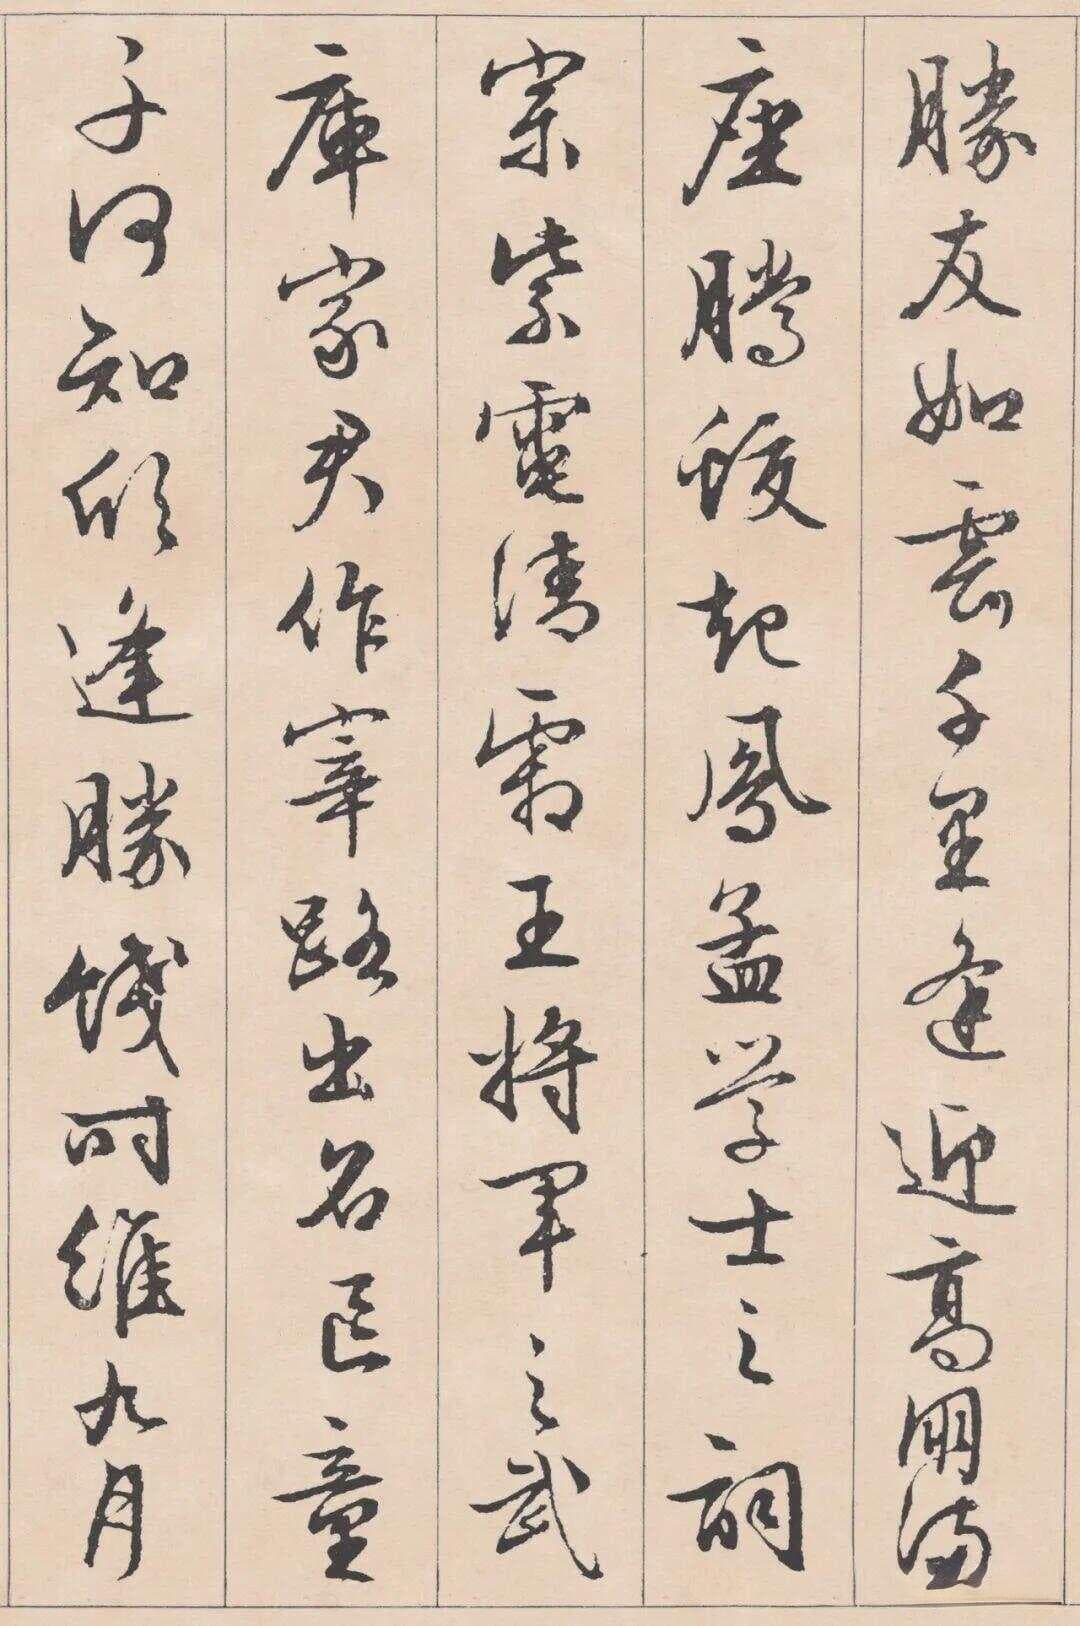 勝友如雲千里逢迎高朋滿
座騰蛟起鳳孟學士之詞
宗紫電清霜王將軍之武
庫家君作宰路出名區童
子何知躬逢勝餞時維九月